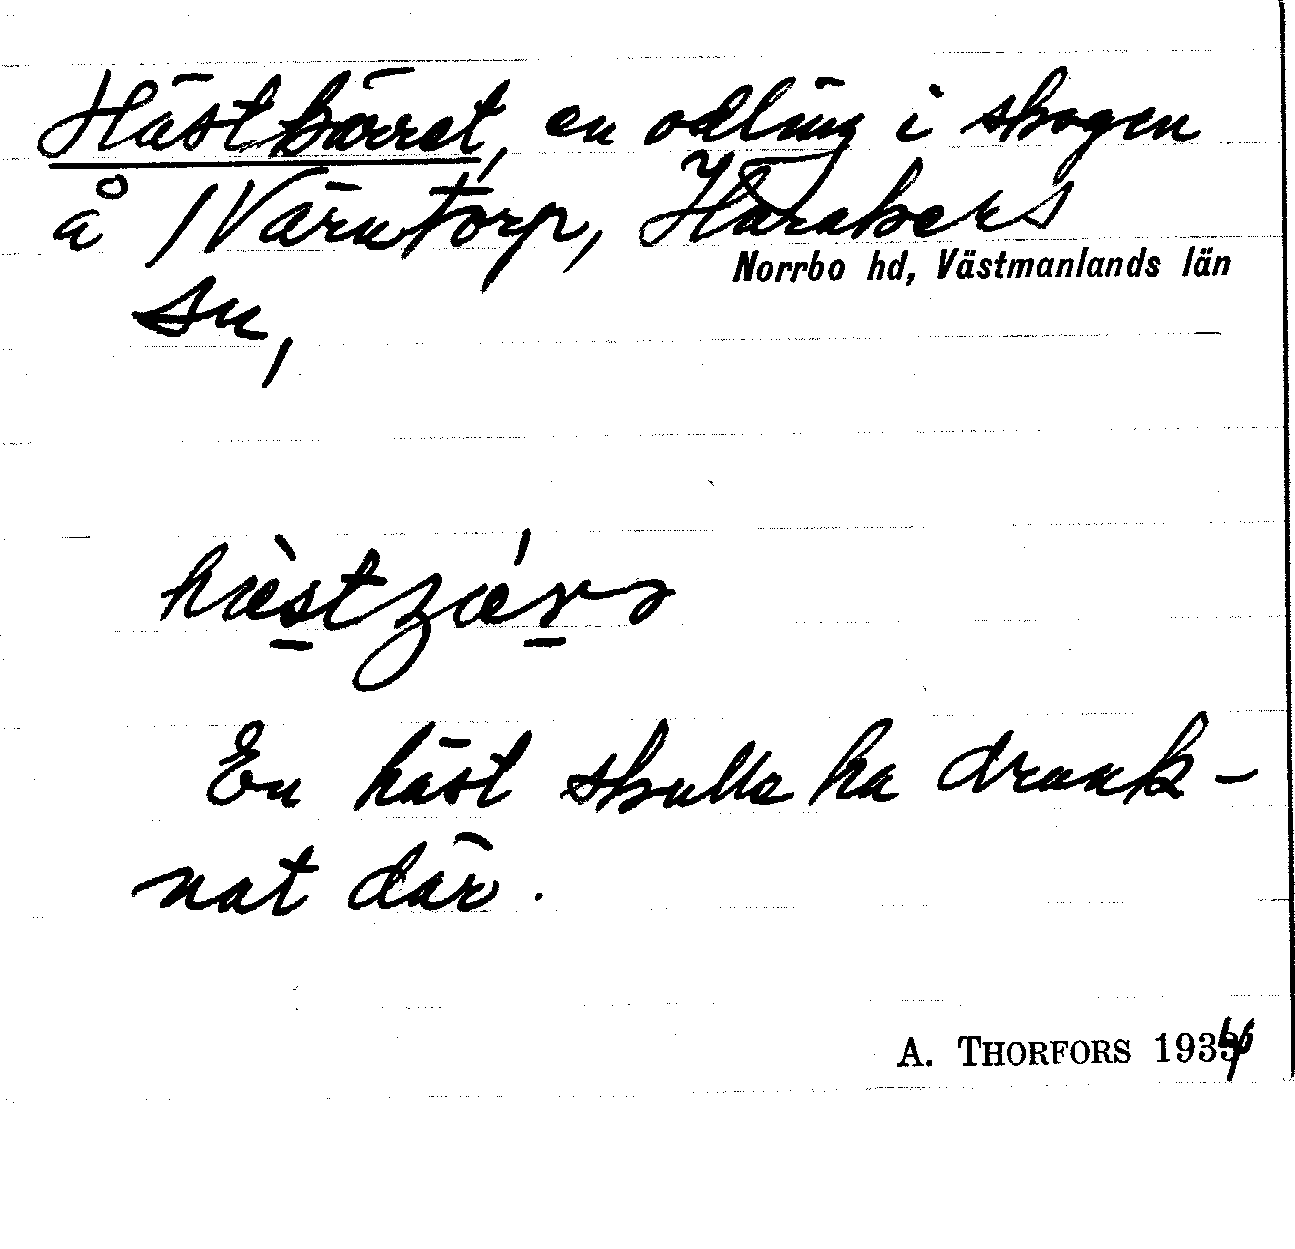 Hästkärret, en odling i skogen
å /Värntorp, Haraker s
Norrbo hd, Västmanlands län
sn,
En häst skulle ha drunk-
nat där.
A. THORFORS 1934